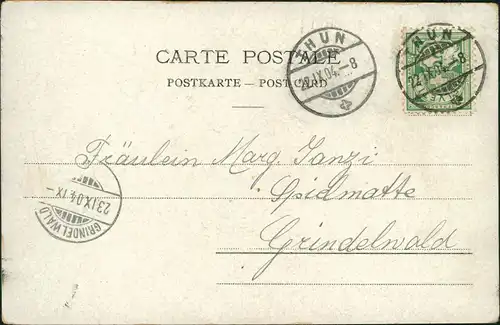 THUN
22.IX.04.-8
THUN
22.IX.04.-8
CARTE POSTALE
POSTKARTE – POST CARD
Fräulein Marg. Janzi
Spielmatte
Grindelwald
23.IX.04.IX-
GRINDELWALD